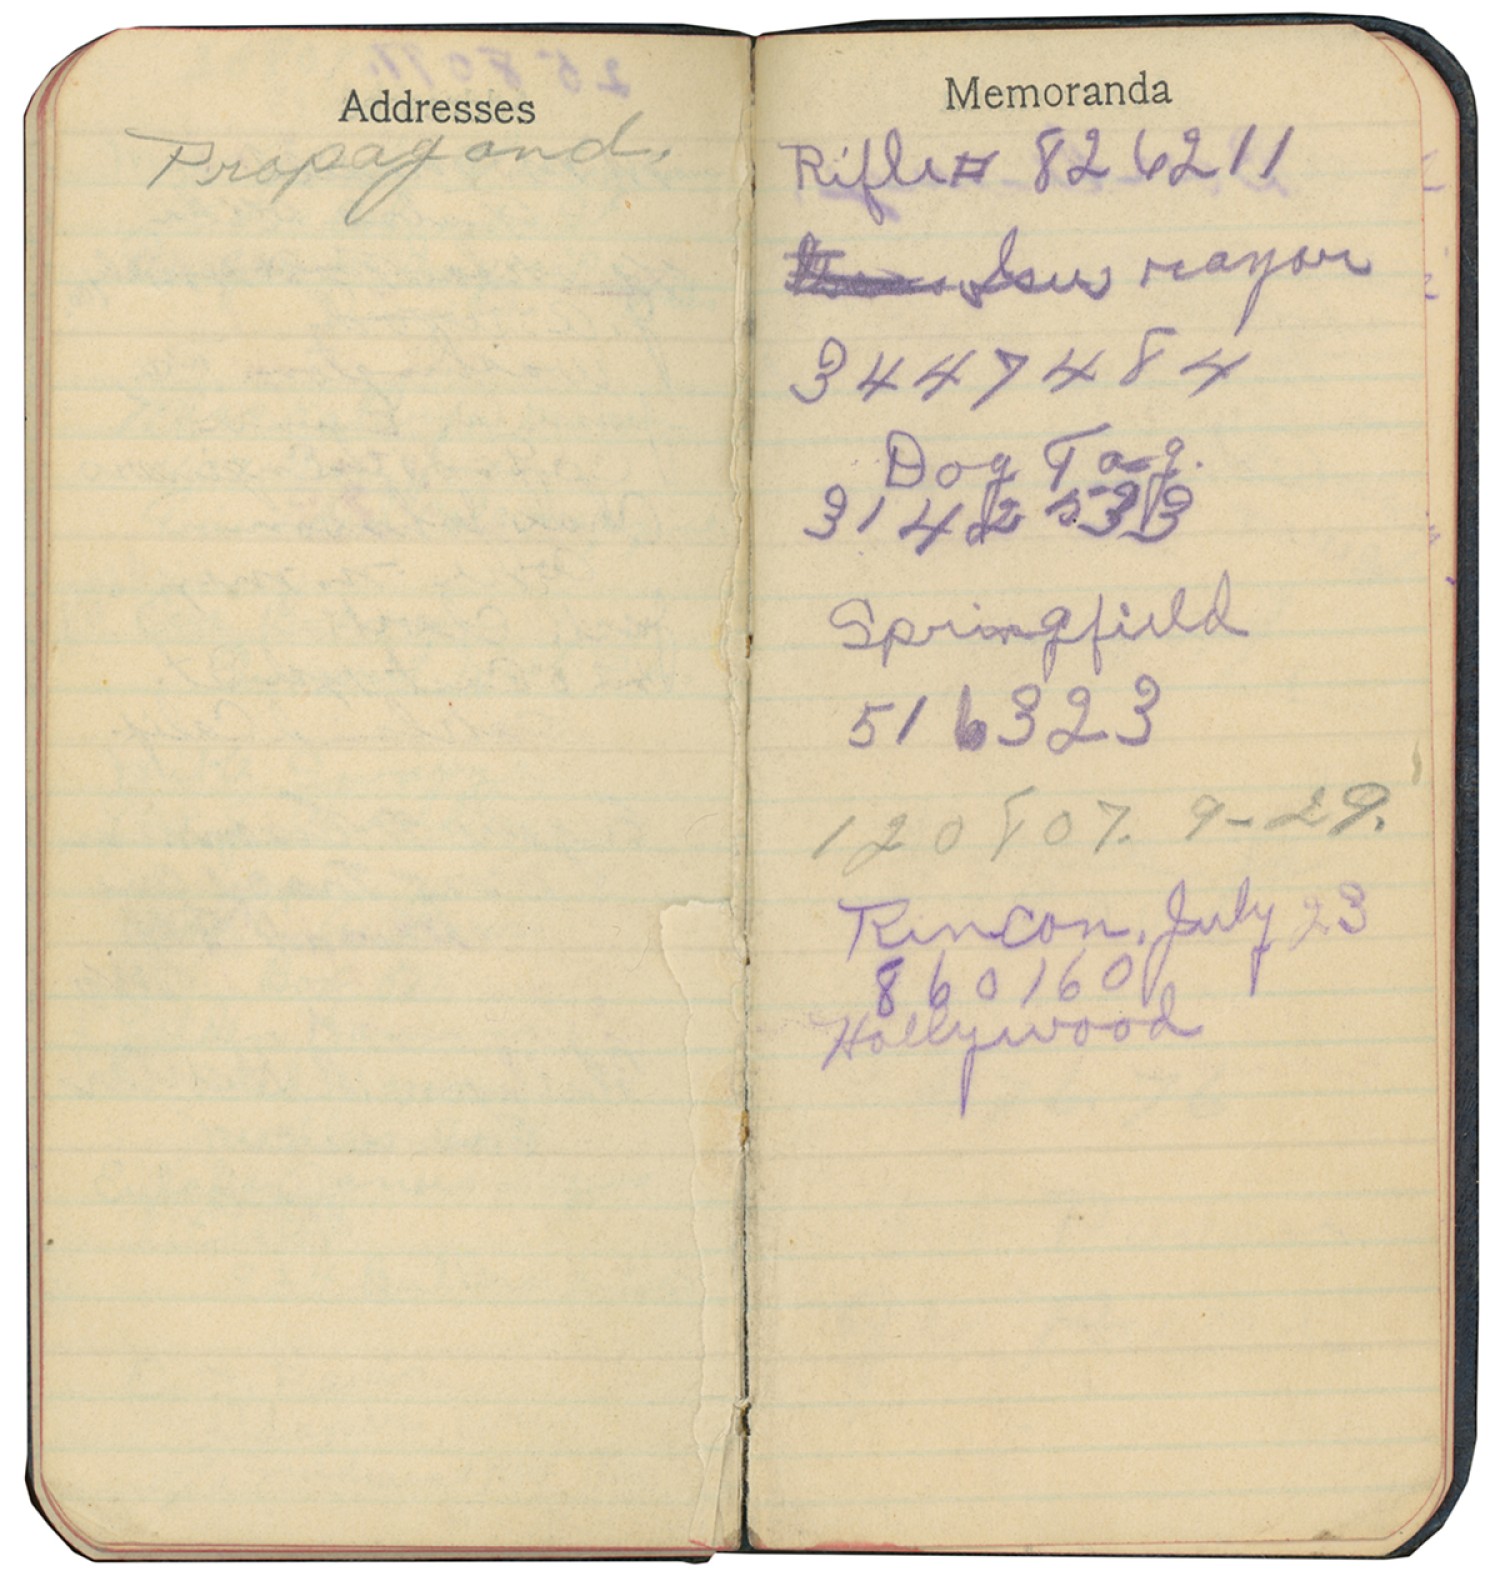 Addresses
Propagand.
Memoranda
Rifle# 826211
rayon
3447484
Dog Tag.
Springfield
516323
120807. 9-29.
Rincon, July 23
860160
Hollywood